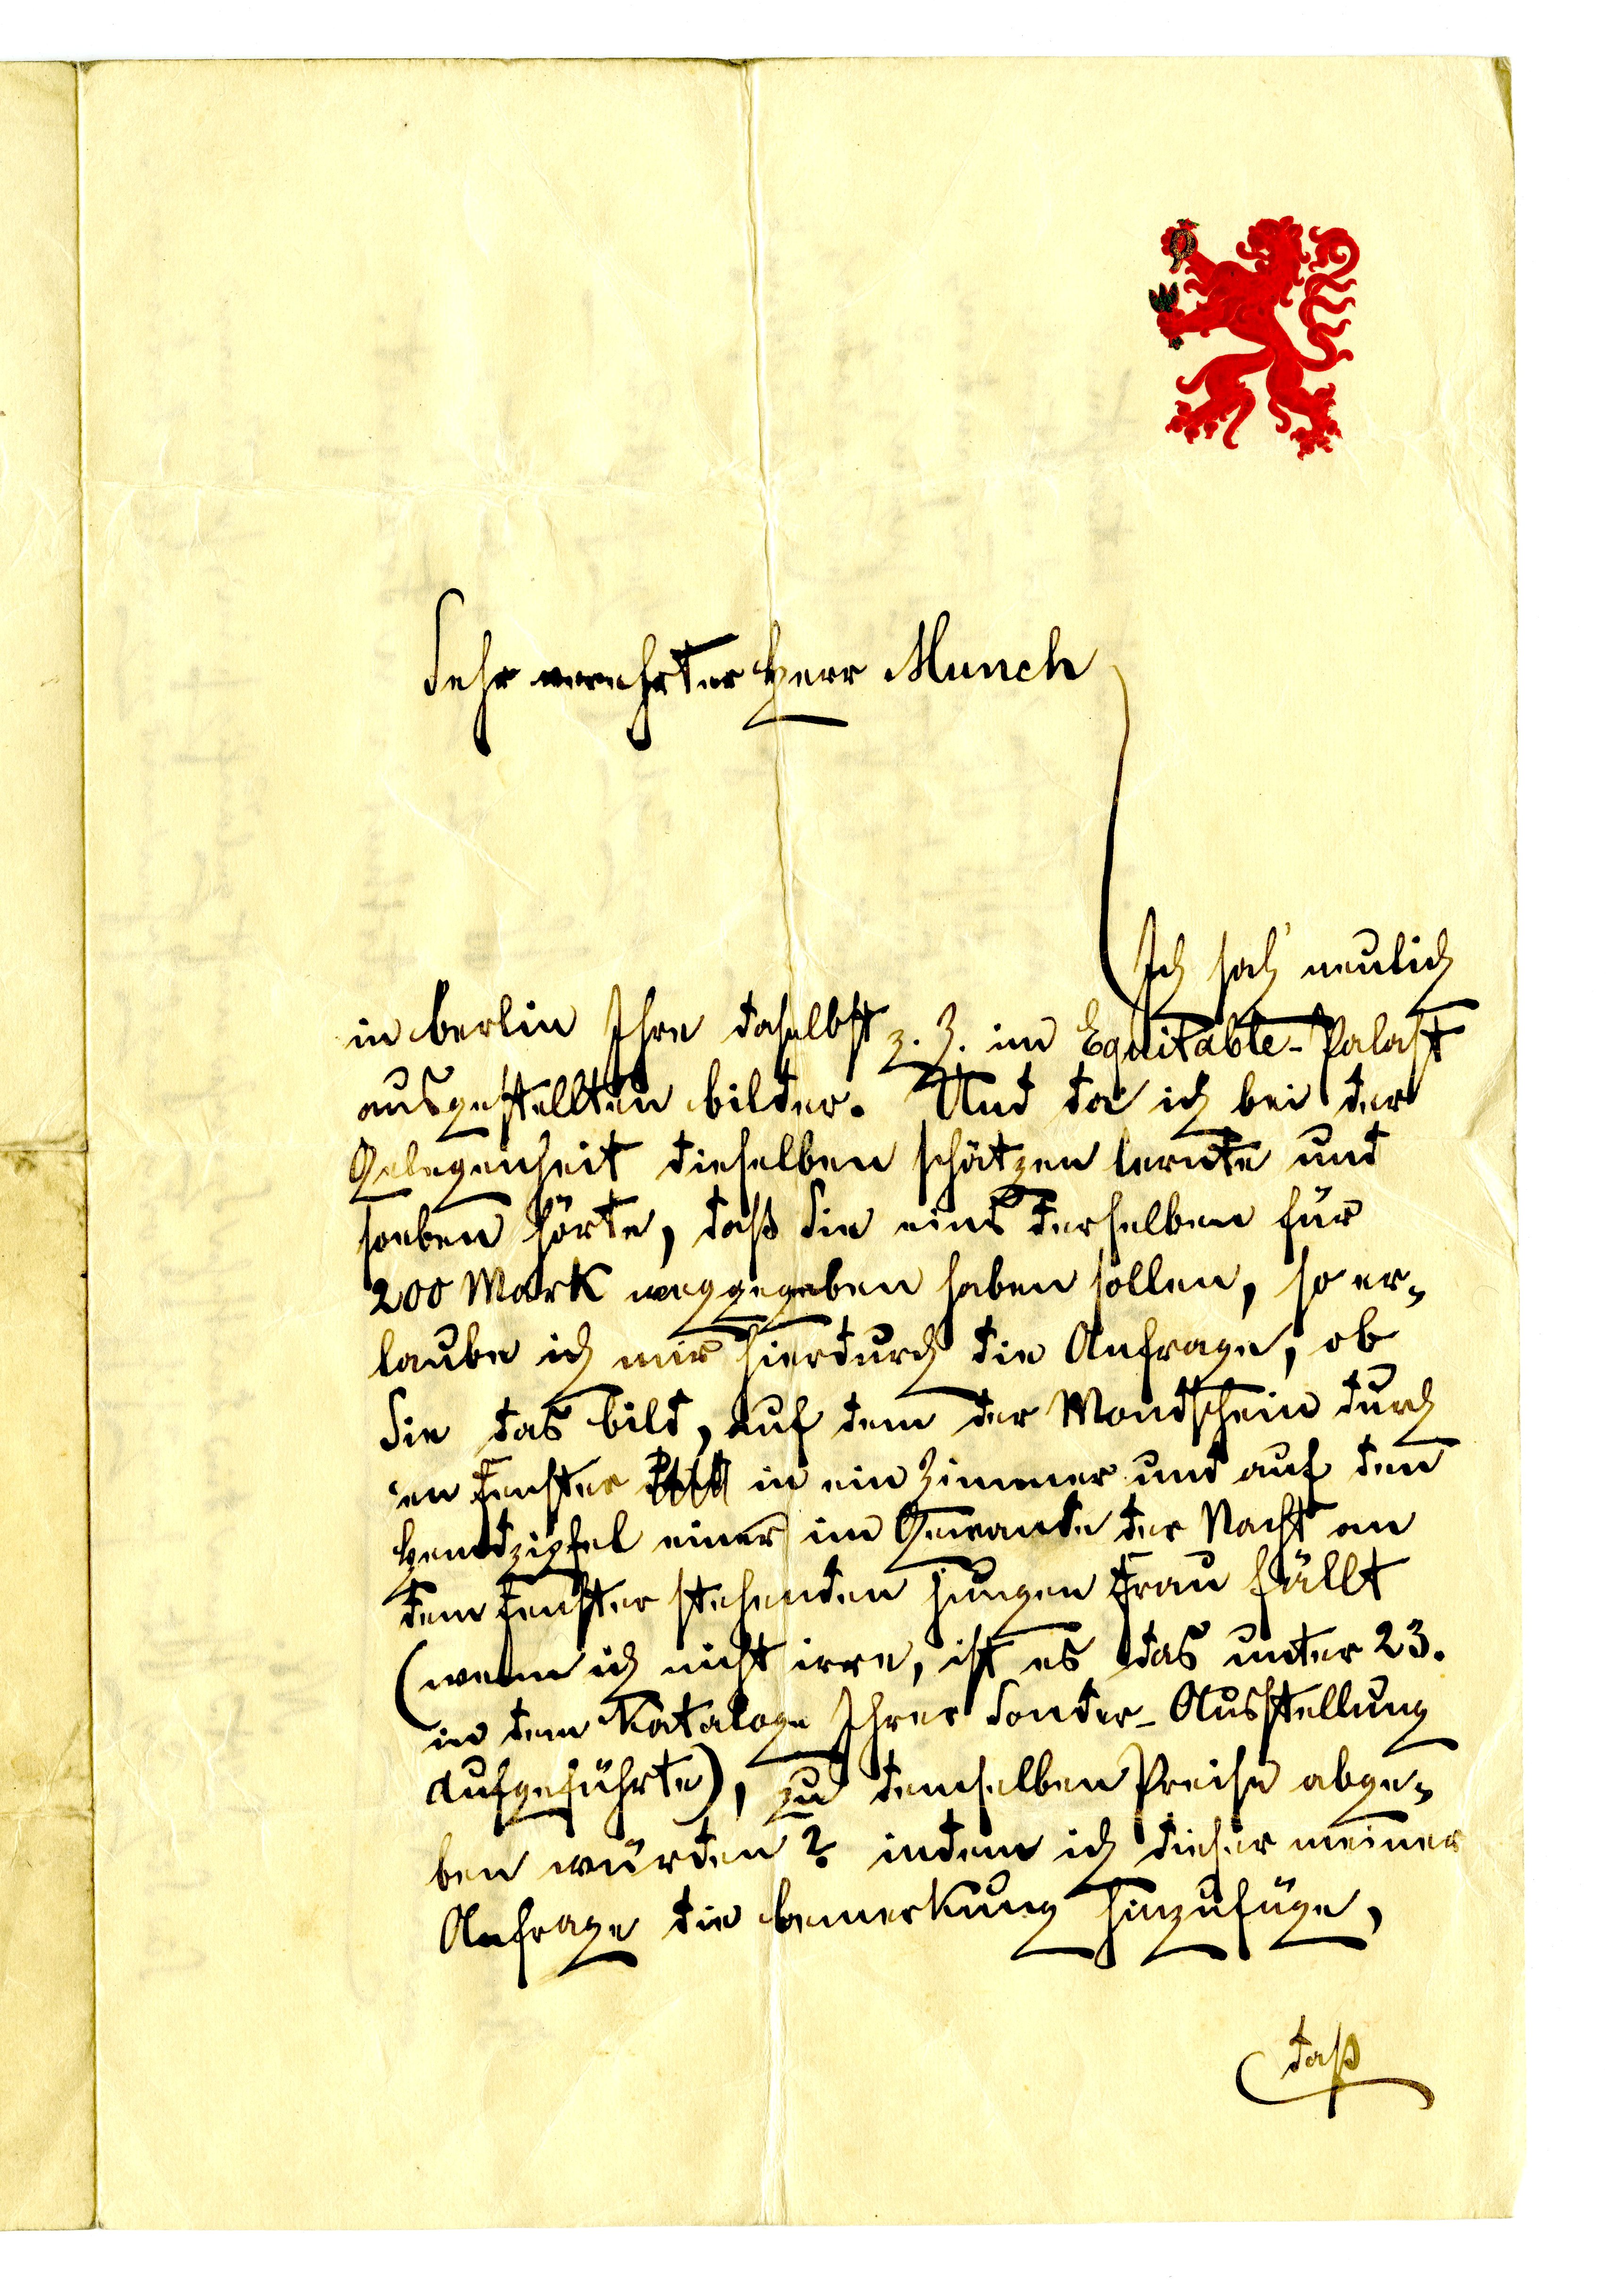 Sehr verehrter Herr Munch
Ich sah' neulich
in berlin Ihre daselbst z. Z. im Equitable-Palast
ausgestellten bilder. Und da ich bei der
Gelegenheit dieselben schätzen lernte und
soeben hörte, daß Sie eins derselben für
200 Mark weggegeben haben sollen, so er-
laube ich mir hierdurch die Anfrage, ob
Sie das bild, auf dem der Mondschein durch
en Fenster in ein Zimmer und auf den
Hemdzipfel einer im Gewande der Nacht an
dem Fenster stehenden jungen Frau fällt
(wenn ich nicht irre, ist es das unter 23.
in dem Kataloge Ihrer Sonder-Ausstellung
aufgeführte), zu demselben Preise abge-
ben würden? indem ich dieser meiner
Anfrage die bemerkung hinzufüge,
daß